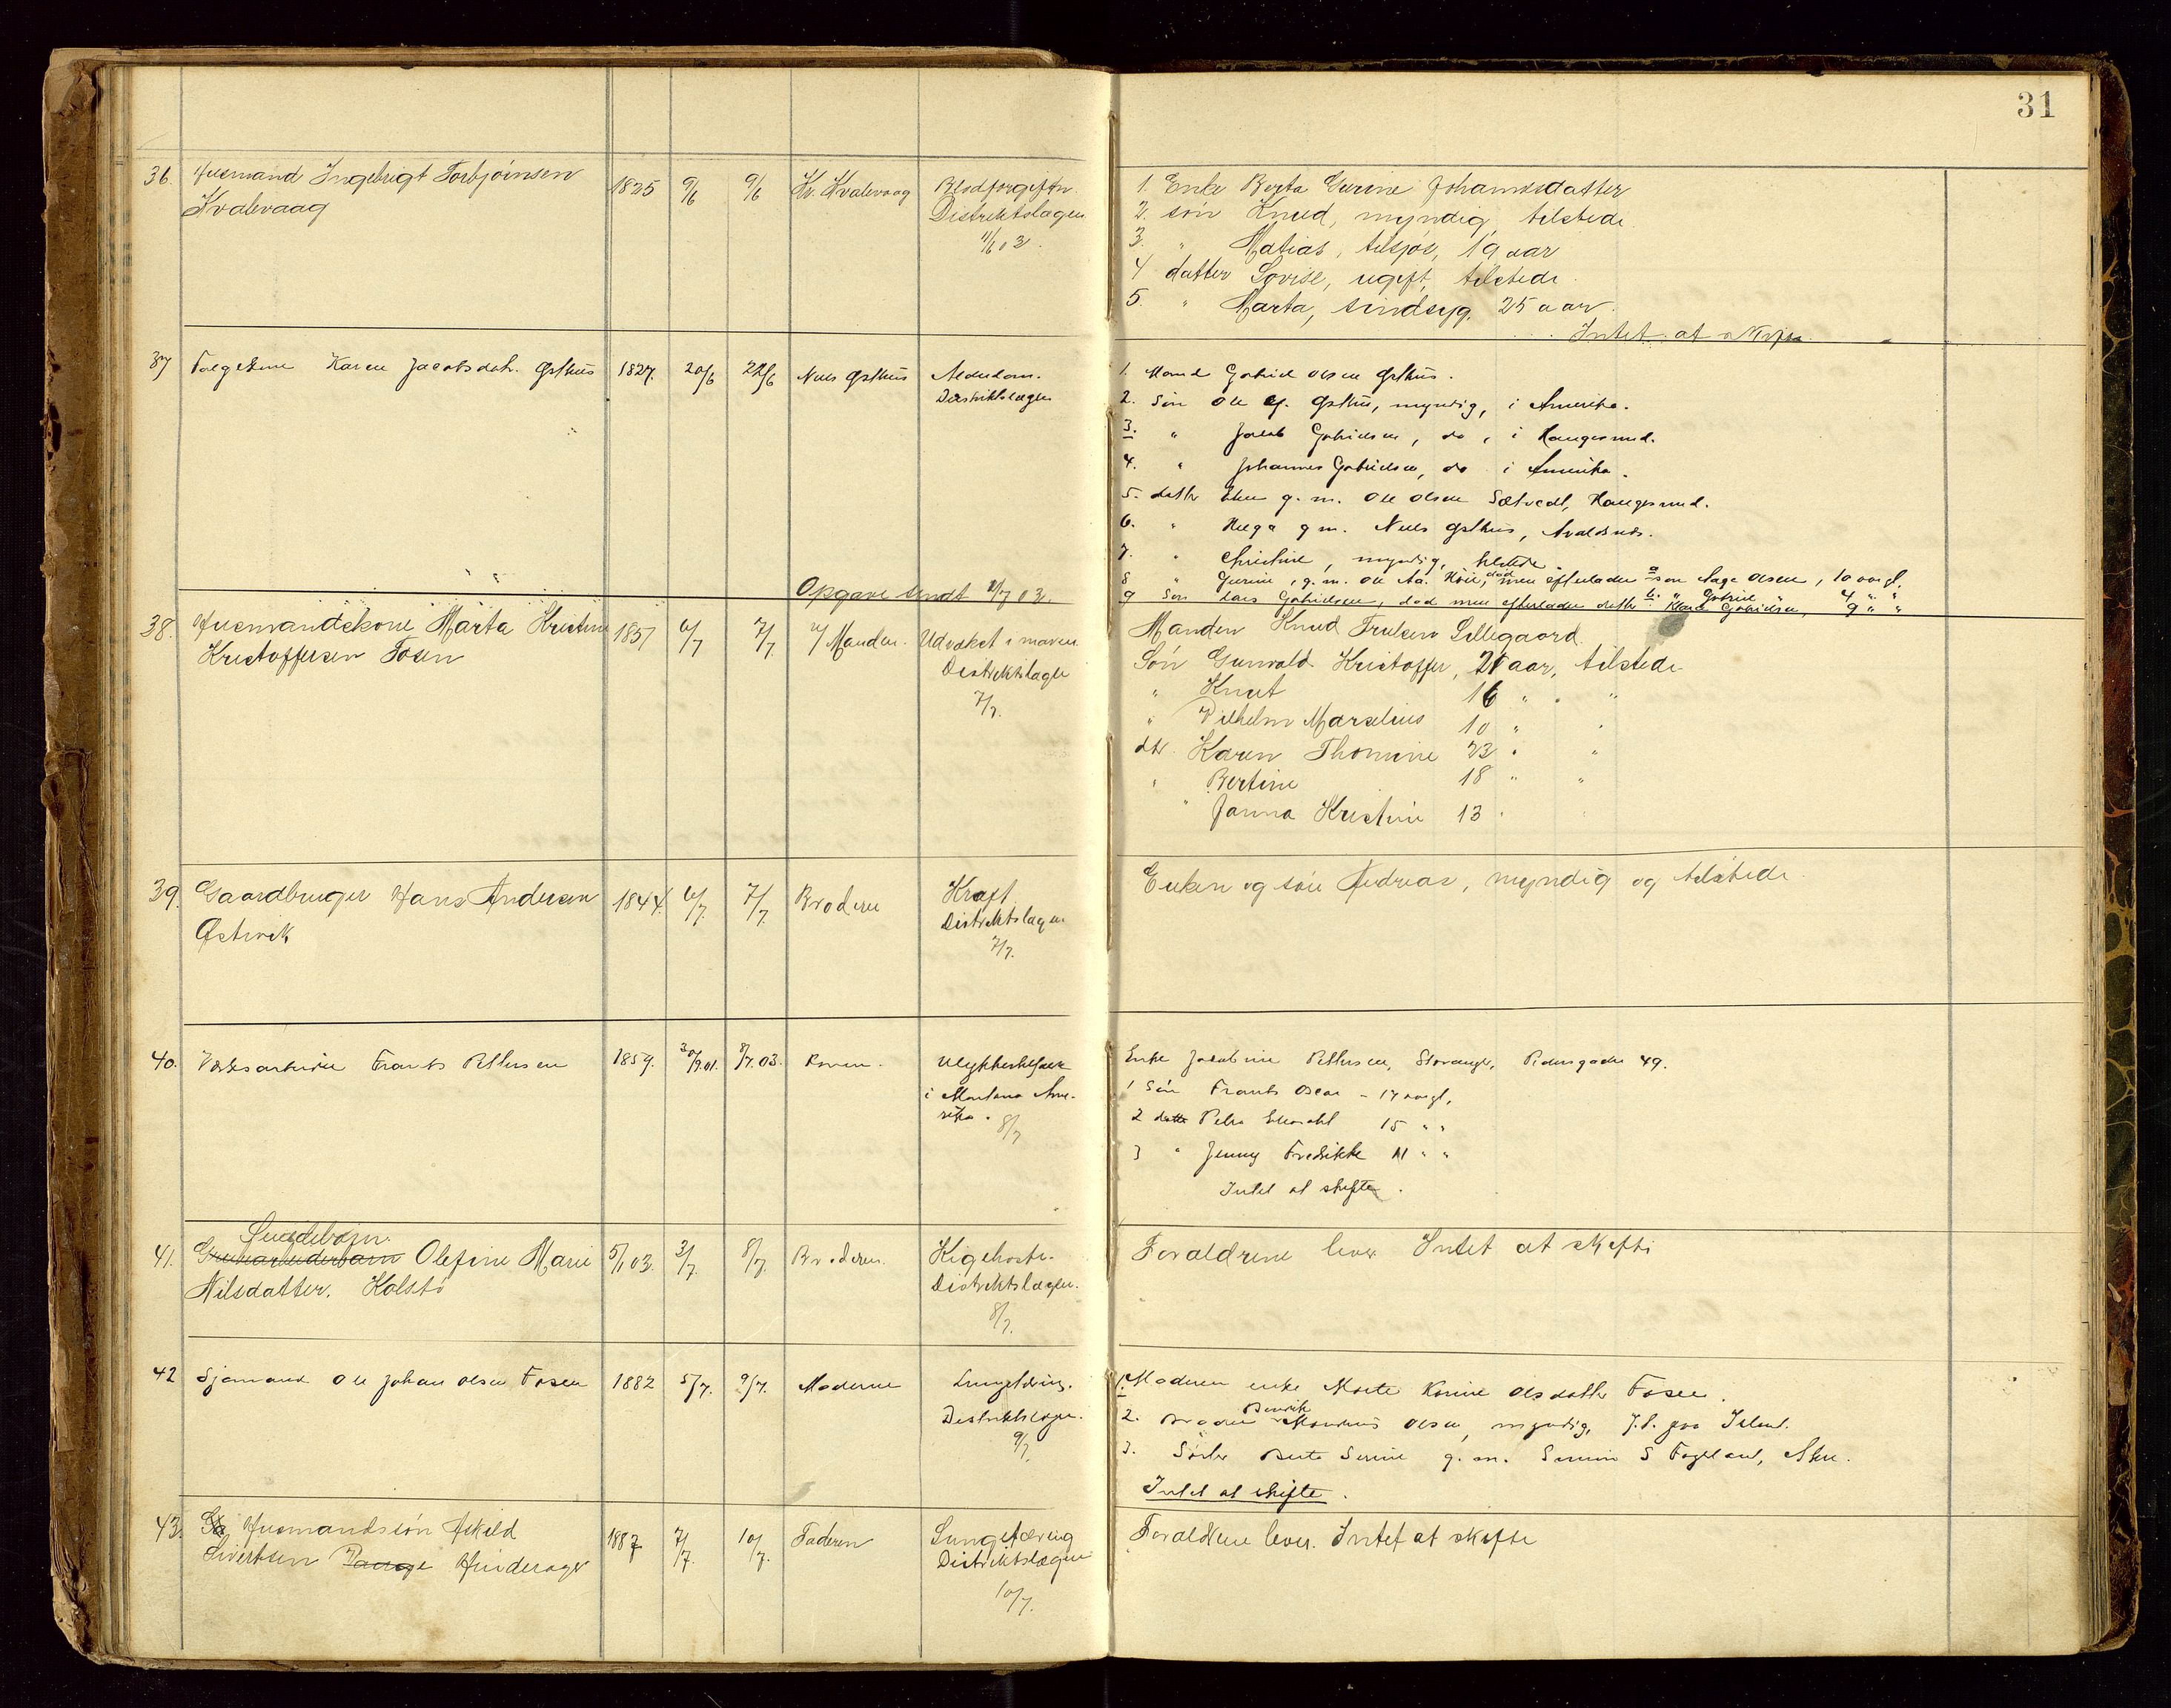 31
36. Husmand Ingebrigt Torbjørnsen
Kvalevaag
1825 9/6 9/6 Kr. Kvalevaag Blodforgiftn.
Distriktslægen
11/6 03.
1. Enke Berta Gurine Johannesdatter
2. søn Knud, myndig, tilstede.
3. " Matias, tilsjøs, 19 aar
4 datter Lovise, ugift, tilstede.
5. " Marta, sindsyg. 25 aar.
Intet at skifte
37 Karen Jacobsdatr. Østhus 1827. 20/6 22/6 Nils Østhus Alderdom.
Distriktslægen
1. Mand Gabriel Olsen Østhus.
2. Søn Ole G. Østhus, myndig, i Amerika.
3. " Jacob Gabrielsen, do, i Haugesund.
4. " Johannes Gabrielsen, do i Amerika.
5. datter g. m. Ole Olsen Sætvedt, Haugesund.
6. " Helga g m. Nils Østhus, Avaldsnes.
7. " Christine, myndig, tilstede.
8 " Gurine, g. m. Ole Aa. død, men efterlader a søn Aage Olsen, 10 aar gl.
b. " Gabriel " 4 " "
9 Søn Lars Gabrielsen, død men efterlader datter Klara Gabrielsen, 9 " "
Opgave sendt 2/7 03.
38. Husmandskone Marta Kristine
Kristoffersen Fosen
1857 6/7 7/7. Manden. Udvækst i maven.
Distriktslægen
7/7.
Manden Knud Trulsen Lillegaard.
Søn Gunvald Kristoffer, 21 aar, tilstede
" Knut 16 " "
" Vilhelm Marselius 10 " "
dtr. Karen Thomine 23 " "
" Bertine 18 " "
" Janna Kristine 13 "
39. Gaardbruger Hans Andersen
Østvik
1844. 6/7. 7/7. Broderen Kræft
Distriktslægen
7/7.
Enken og søn Andreas, myndig og tilstede.
40. Frants Pettersen 1859. 30/9.01. 8/7.03. Ulykkestilfælde
i Montana Ame-
rika. 8/7
Enke Jacobine Pettersen, Stavanger, Pedersgaden 49.
1 Søn Frants Oscar - 17 aar gl.
2 datter Petra 15 " "
3 " Jenny Fredrikke 11 " "
Intet at skifte.
41. Grubearbeiderbarn Olefine Marie
Nilsdatter. Kolstø
5/1 03. 3/7. 8/7. Broderen. Kighoste.
Distriktslægen.
8/7.
Forældrene lever Intet at skifte
42 Sjømand Ole Johan Olsen Fosen 1882 5/7. 9/7. Moderen Lungetæring.
Distriktslægen.
9/7.
1. Moderen enke Marte Karine Olsdatter Fosen.
2. Broder Olsen, myndig, paa Island.
3. Søster Berte Serine g. m. S
Intet at skifte.
43. Husmandssøn Askild
Sivertsen Hinderager
1887 7/7. 10/7. Faderen Lungetæring
Distriktslægen
10/7.
Forældrene lever. Intet at skifte